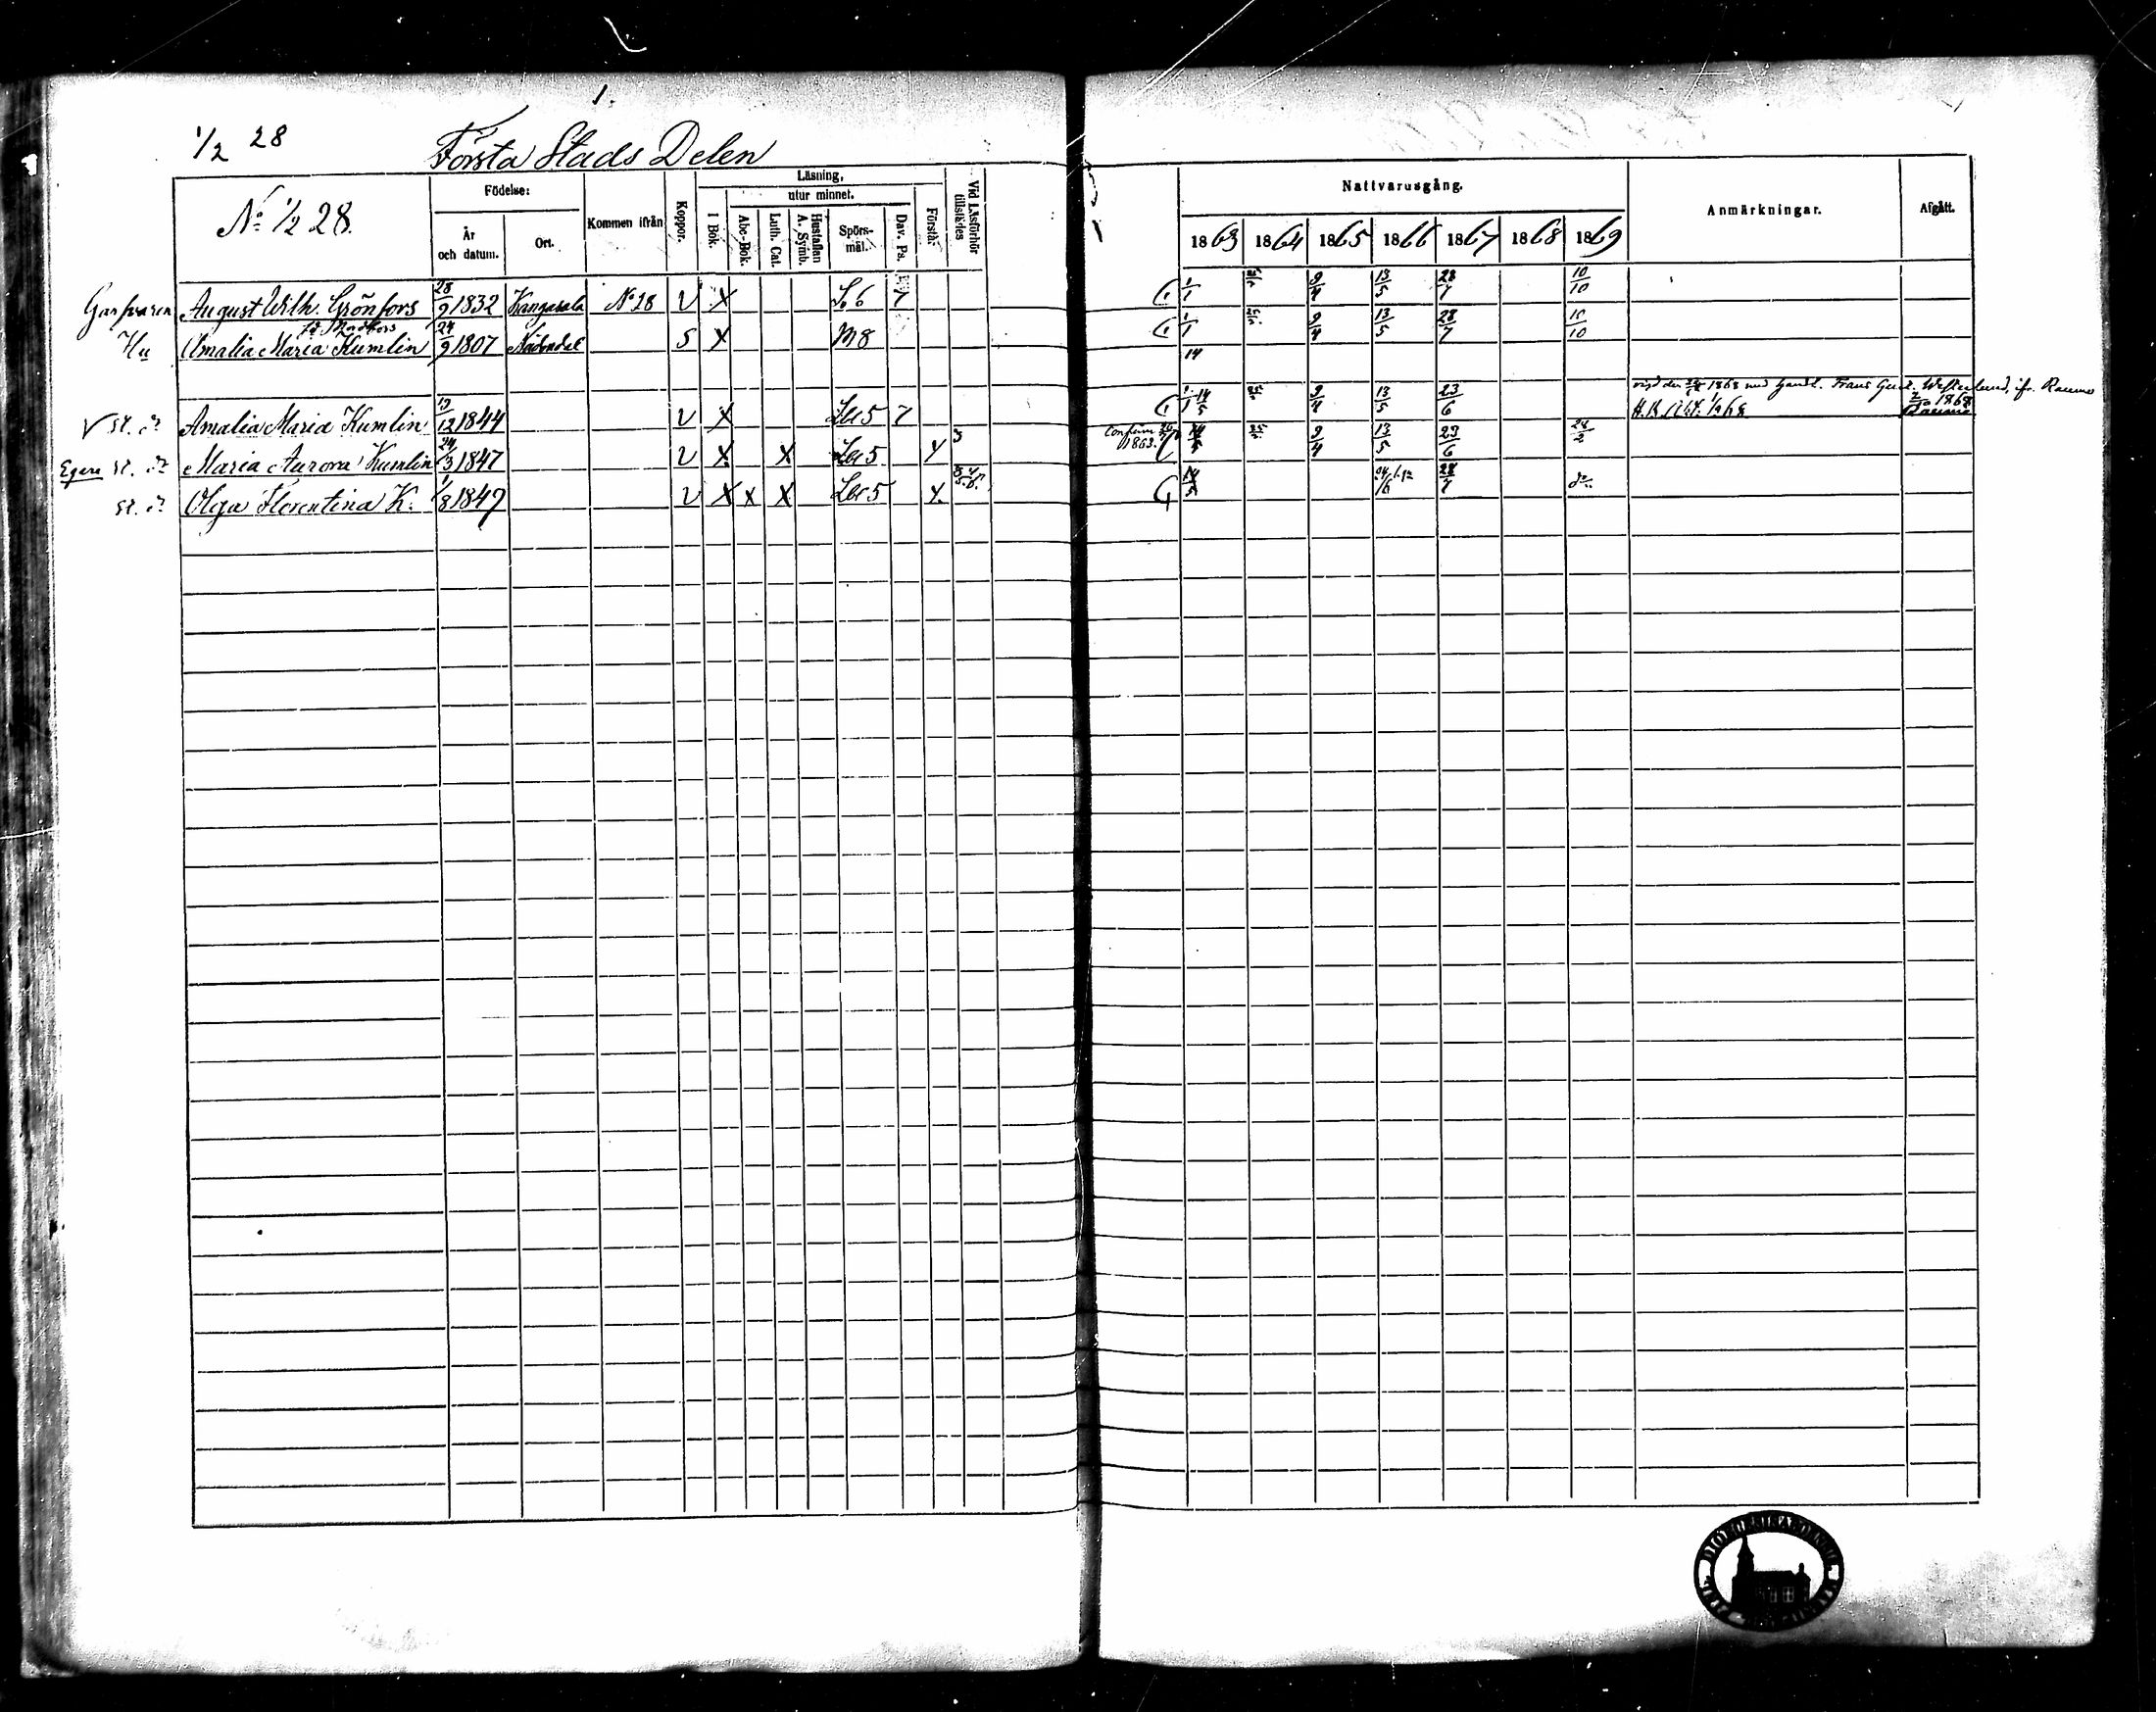 1.
1/2 28
Första Stads Delen
No 1/2 28.
Födelse:
År och datum.
Ort.
Kommen ifrån
Koppor.
Läsning,
utur minnet.
I Bok.
Abc-Bok.
Luth. Cat.
Hustaflan A. Symb.
Spörsmål.
Dav. Ps.
Förstår
Vid Läsförhör tillstädes
Nattvardsgång.
1863 1864 1865 1866 1867 1868 1869
Anmärkningar.
Afgått.
Garfvaren August Wilh. Grönfors 28/9 1832 Kangasala No 28 v X S. 6 7 1/1 9/4 13/5 28/7 10/10
Hu Amalia Maria Kumlin 24/9 1807 Nådendal S X M 8 1/1 9/4 13/5 28/7 10/10
14
st. d. Amalia Maria Kumlin 13/12 1844 v X 5 7 1/1 14/5 9/4 13/5 23/6 1868 med Handl. Frans Westerlund, ifr. Raumo
1868 Raumo
Egere st. d. Maria Aurora Kumlin 24/3 1847 v X X 5 Y 3 Confirm 1863. 9/4 13/5 23/6 24/2
st. d. Olga Florentina K. 1/8 1847 v X X X 5 Y. 28/7 do